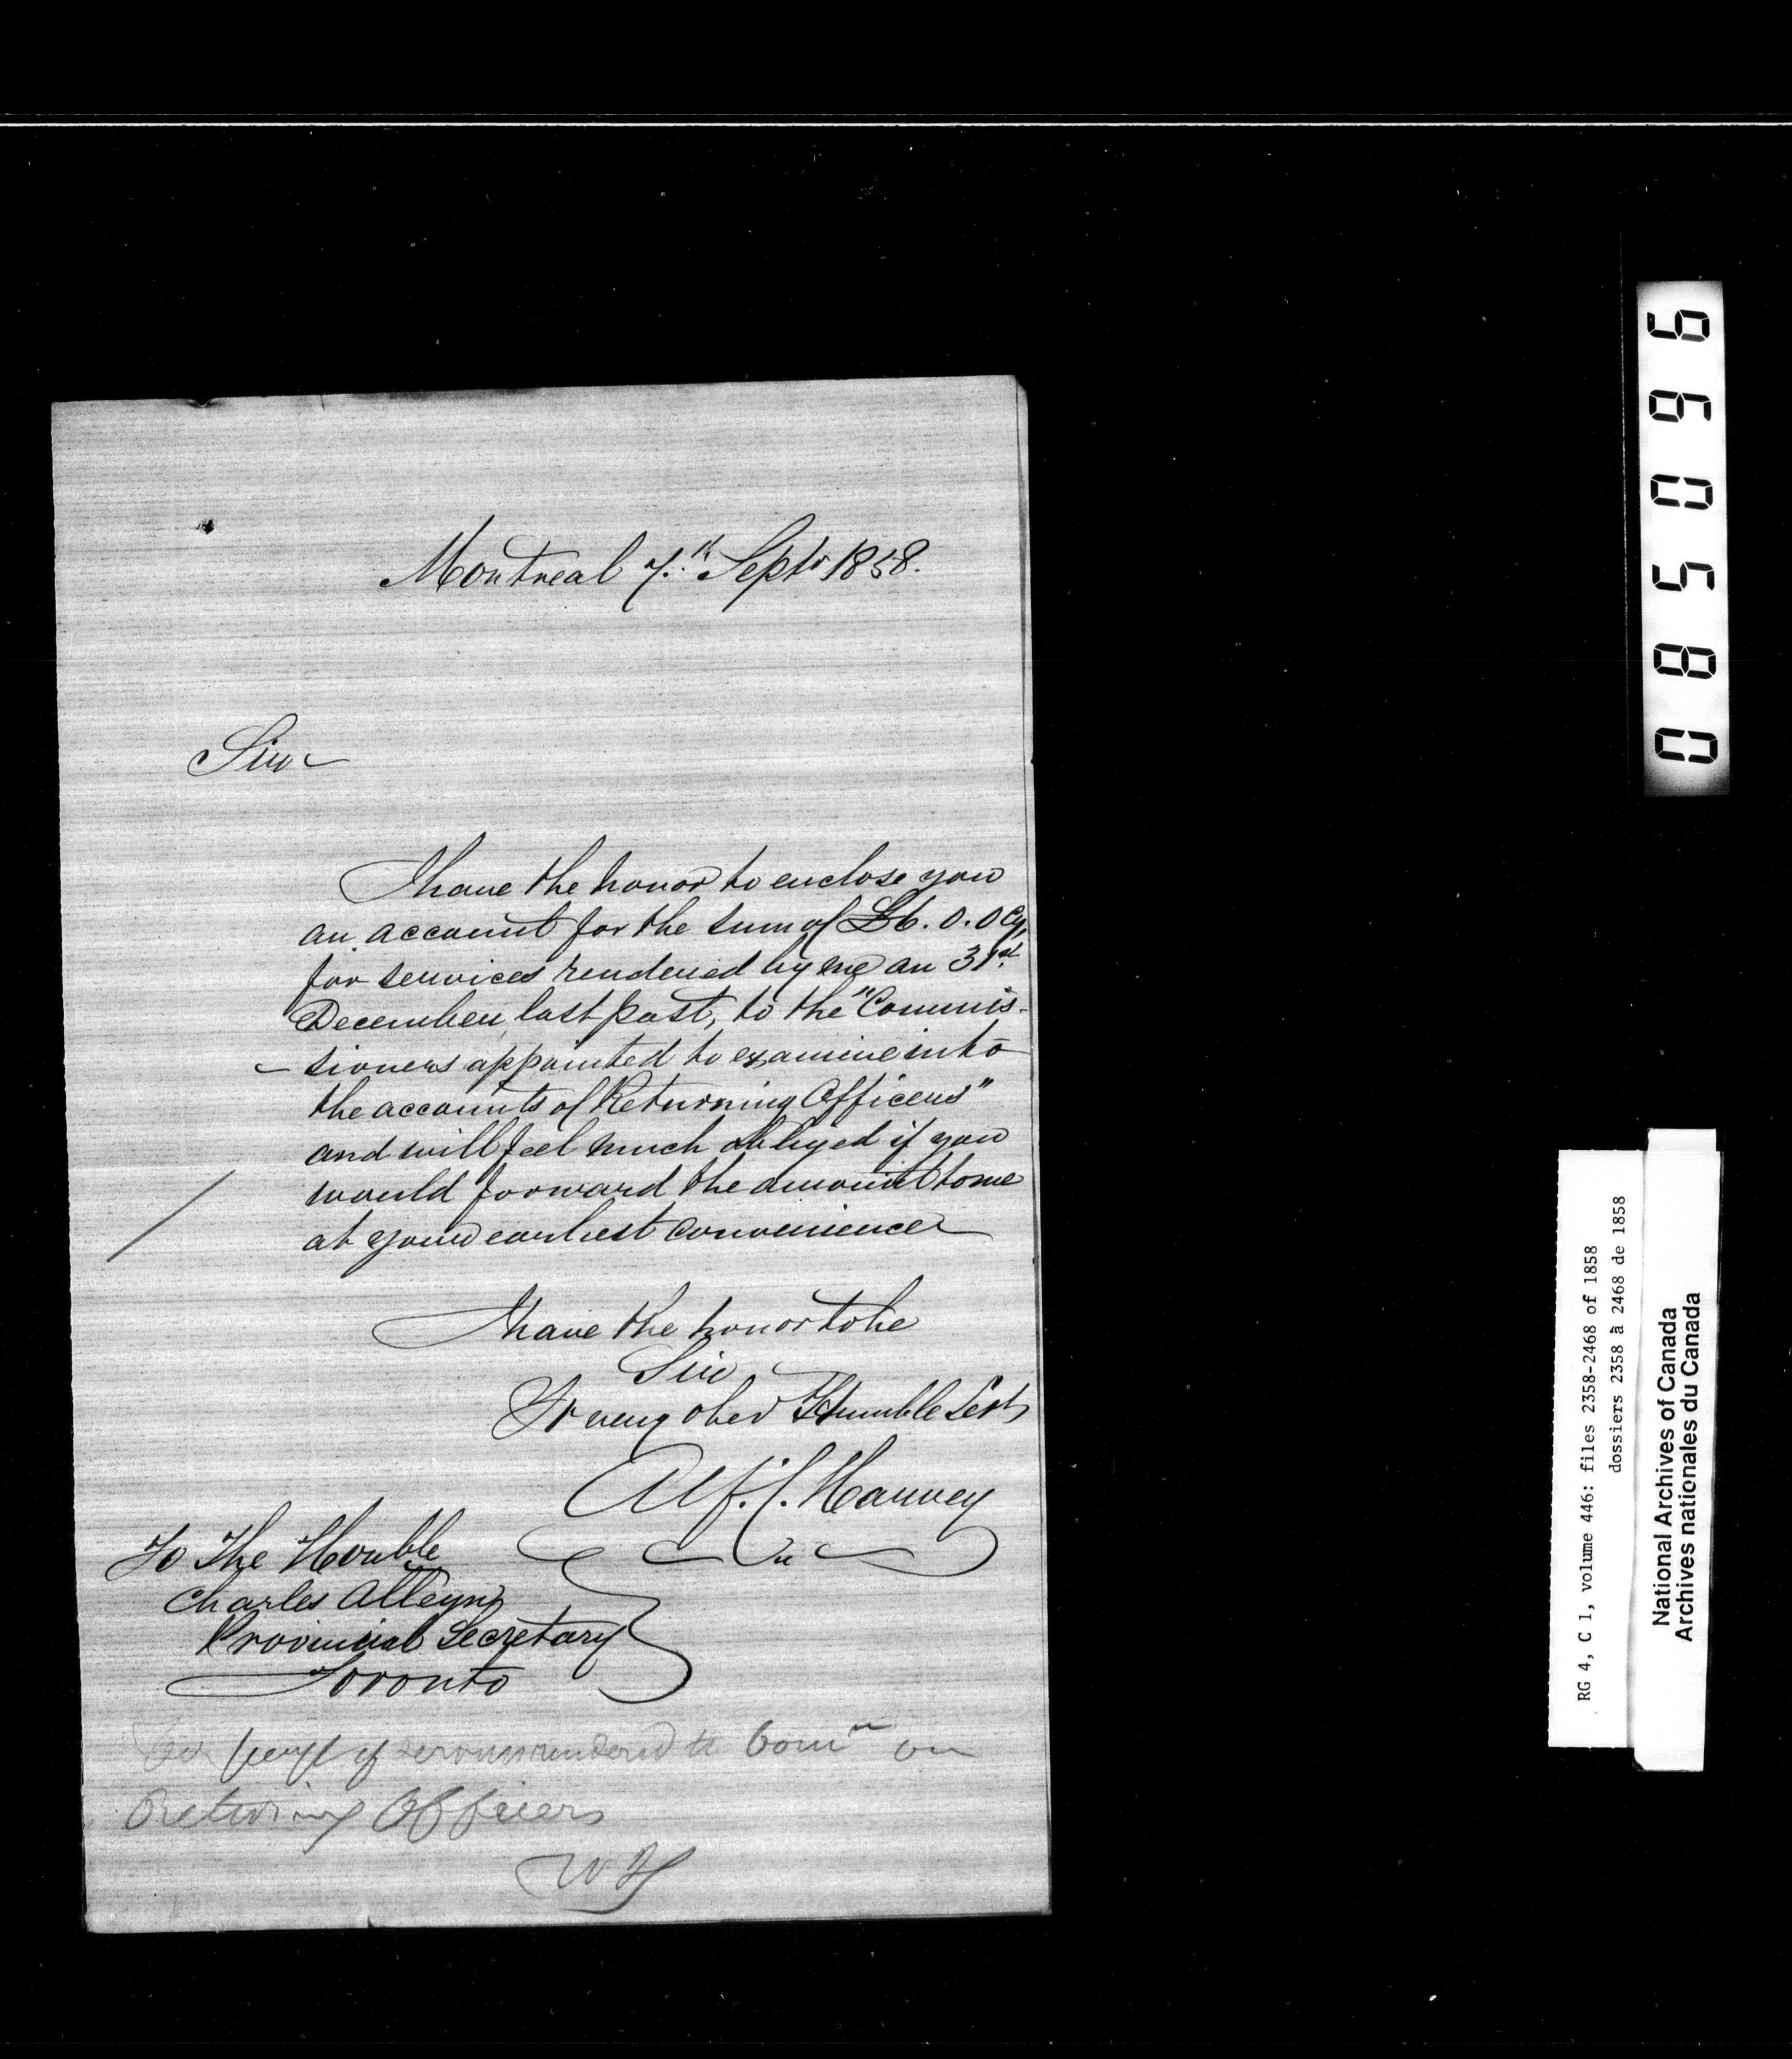 Montreal 7.th Septr 1858.
Sir
I have the honor to enclose you
an account for the sum of £6. 0. 0 Cy,
for services rendered by me on 31st.
December last past, to the "Commis-
-sioners appointed to examine into
the accounts of Returning Officers"
and will feel much obliged if you
would forward the amount to me
at your earliest convenience
I have the honor to be
Sir
Yr very obed Humble Servt,
Alf. C. Harvey
To The Honble
Charles Alleyn,
Provincial Secretary
Toronto
For payt of services rendered to Comrs on
Returning Officers
085096
RG 4, C 1, volume 446: files 2358-2468 of 1858
dossiers 2358 à 2468 de 1858
National Archives of Canada
Archives nationales du Canada